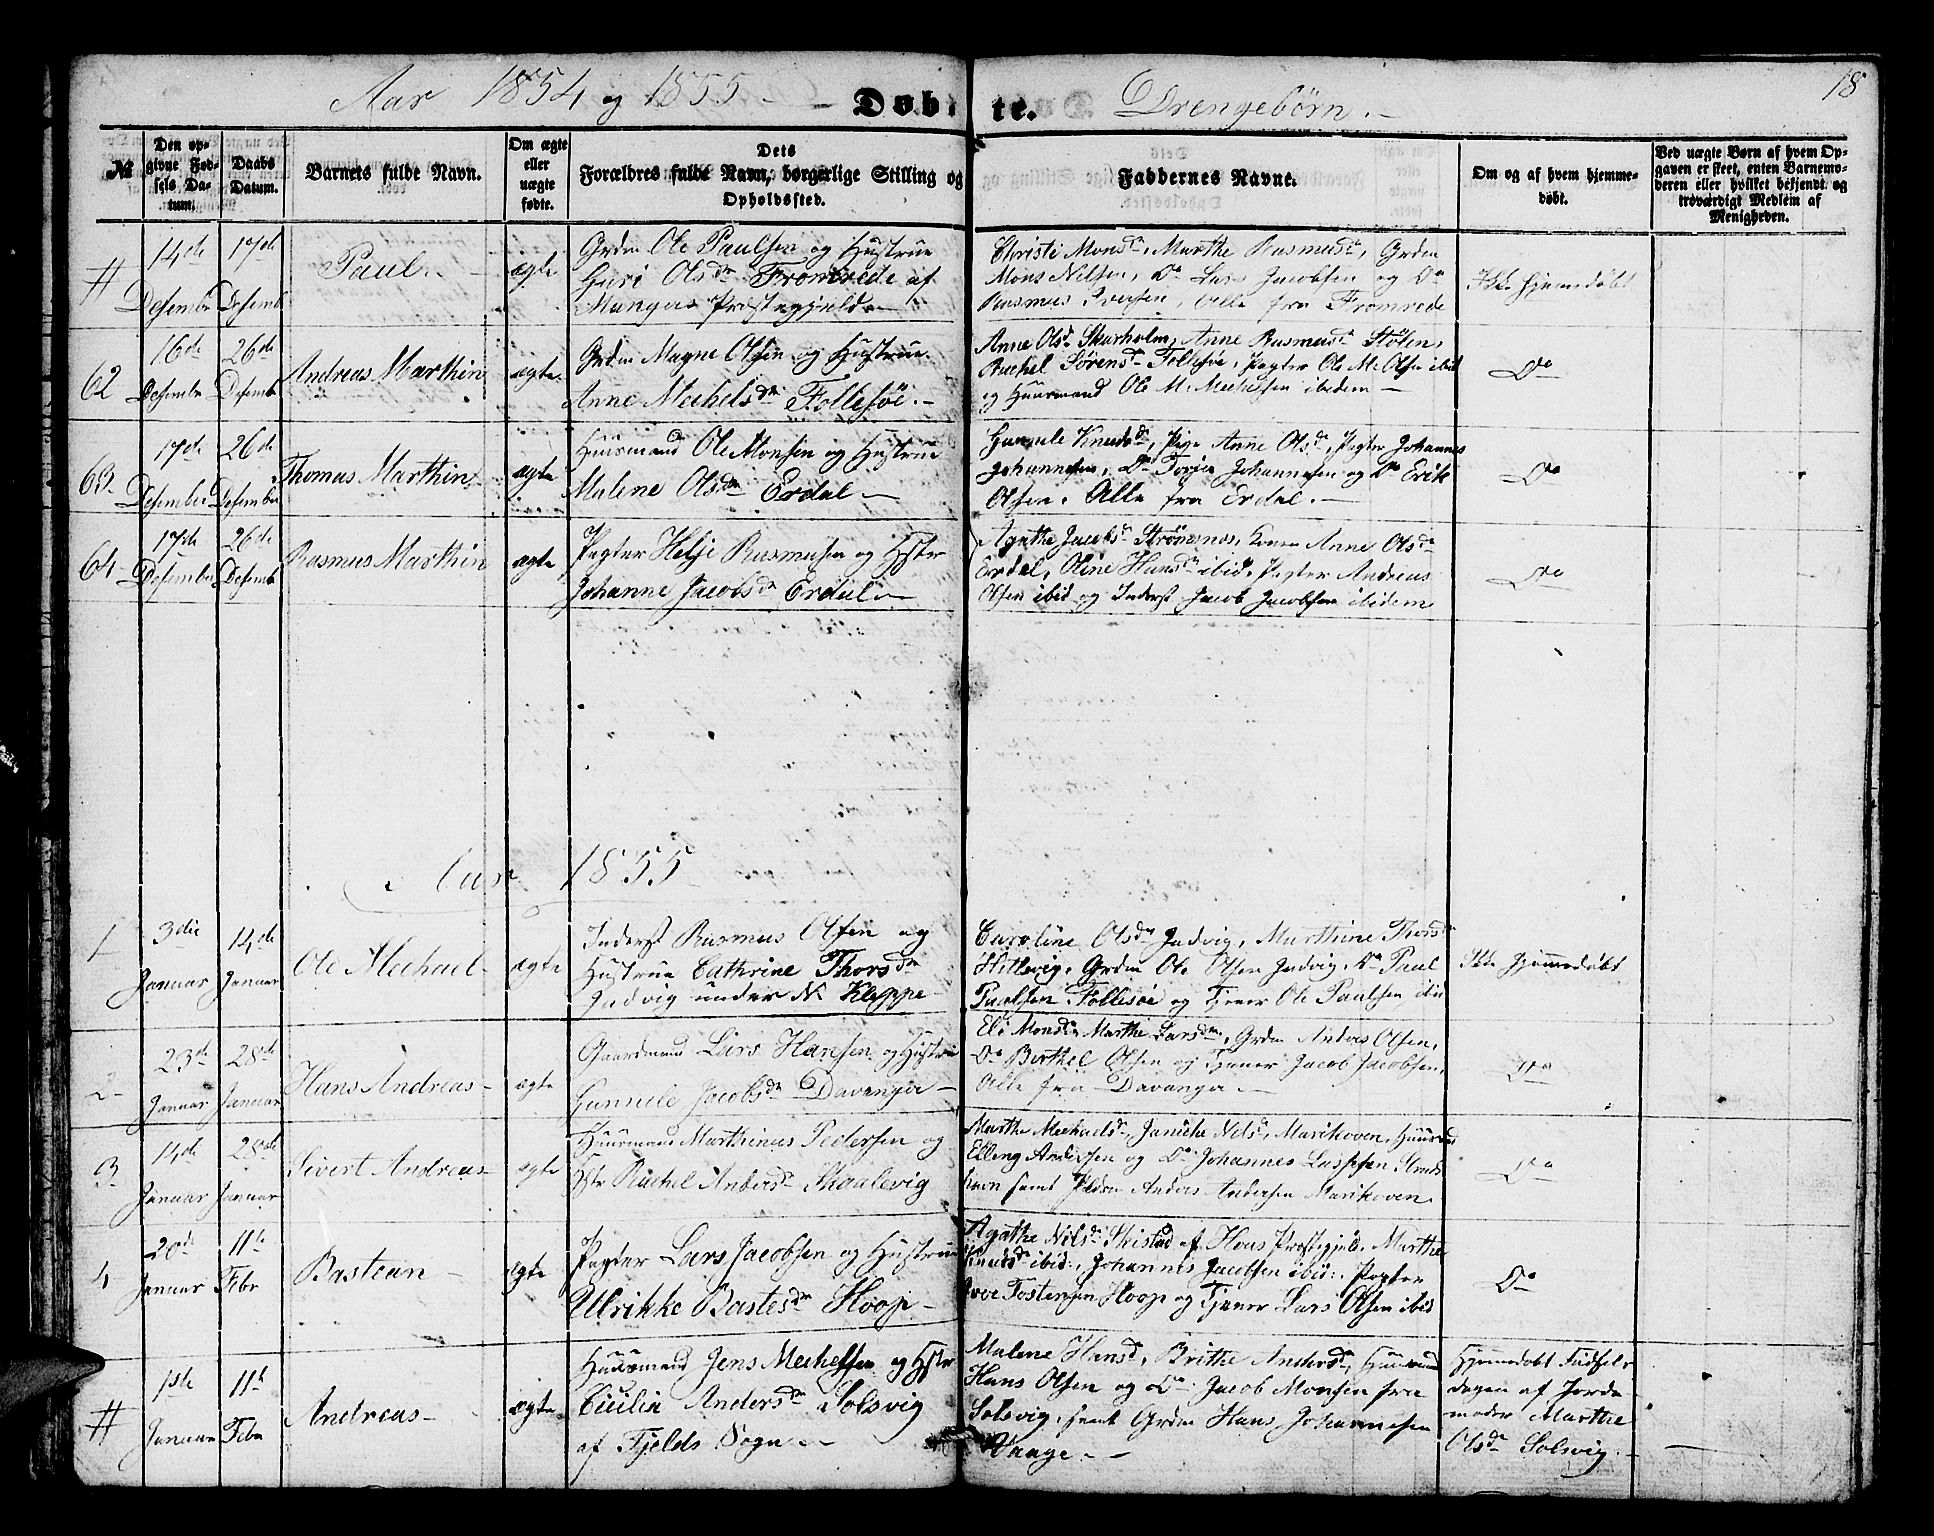 Aar 1854 og 1855 – Døbte. Drengebørn. 18
№
Den opgivne Fødsels Datum.
Daabs Datum.
Barnets fulde Navn.
Om ægte eller uægte fødte.
Dets Forældres fulde Navn, borgerlige Stilling og Opholdssted.
Faddernes Navne.
Om og af hvem hjemmedøbt.
Ved uægte Børn af hvem Opgaven er skeet, enten Barnemoderen eller hvilket bekjendt og troværdigt Medlem af Menigheden.
#
14de Desember
17de Desemb
Paul
ægte
Grdm Ole Paulsen og Hustrue
Guri Olsdr Fromrede af
Manger Præstegjeld
Christi Monsdr, Marthe Rasmusdr, Grdm
Mons Nilsen, Do Lars Jacobsen og Do
Rasmus Iversen, Alle fra Fromrede
Ikke hjemedøbt
62
16de Desember
26de Desemb
Andreas Marthin
ægte
Grdm Magne Olsen og Hustrue
Anne Mechelsdr Follesøe
Anne Olsdr Skarholm, Anne Rasmusdr Stølen,
Rachel Sørensdr Follesøe, Pagter Ole M. Olsen ibid
og Huusmand Ole M. Mechelsen ibidem
Do
63
17de Desember
26de Desember
Thomas Marthin
ægte
Huusmand Ole Monsen og Hustrue
Malene Olsdr Erdal
Gunnile Knudsdr, Pige Anne Olsdr, Pagter Johannes
Johannesen, Do Torjer Johannesen og Do Erik
Olsen. Alle fra Erdal.
Do
64
17de Desember
26de Desemb
Rasmus Marthin
ægte
Pagter Helje Rasmusen og Hstr
Johanne Jacobsdr Erdal
Agathe Jacobsdr Strømsnes, Kone Anne Olsdr
Erdal, Oline Hansdr ibid, Pagter Andreas
Olsen ibid og Inderst Jacob Jacobsen ibidem
Do
Aar 1855
1
3die Januar
14de Januar
Ole Mechael
ægte
Inderst Rasmus Olsen og
Hustrue Cathrine Thorsdr
Judvig under N. Kleppe
Caroline Olsdr Judvig, Marthine Thorsdr
Hillevig, Grdm Ole Olsen Judvig, Do Paul
Paulsen Follesøe og Tjener Ole Paulsen ibid
Ikke hjemmedøbt
2
23de Januar
28de Januar
Hans Andreas
ægte
Gaardmand Lars Hansen og Hustrue
Gunnile Jacobsdr Davanger
Eli Monsdr, Marthe Larsdr, Grdm Anders Olsen,
Do Berthel Olsen og Tjener Jacob Jacobsen,
Alle fra Davanger
Do
3
14de Januar
28de Januar
Sivert Andreas
ægte
Huusmand Marthinus Pedersen og
Hstr Rachel Andersdr Skaalevig
Marthe Mechaelsdr, Janiche Nilsdr, Marikoven, Huusmd
Elling Andersen og Do Johannes Lassesen
havn samt Anders Andersen Marikoven
Do
4
20de Januar
11te Febr
Bastean
ægte
Pagter Lars Jacobsen og Hustrue
Ulrikke Bastesdr Hoop
Agathe Nilsdr Skistad af Hous Præstegjeld, Marthe
Knudsdr ibid:, Johannes Jacobsen ibid:, Pagter
Iver Tostensen Hoop og Tjener Lars Olsen ibid
Do
#
1ste Januar
11te Febr
Andreas
ægte
Huusmand Jens Mechelsen og Hstr
Cicilia Andersdr Solsvig
af Fjelds Sogn
Malene Hansd, Brithe Andersdr, Huusmd
Hans Olsen og Do Jacob Monsen fra
Solsvig, samt Grdm Hans Johannesen
Vaage
Hjemmedøbt Fødsels
dagen af Jorde
moder Marthe
Olsdr Solsvig